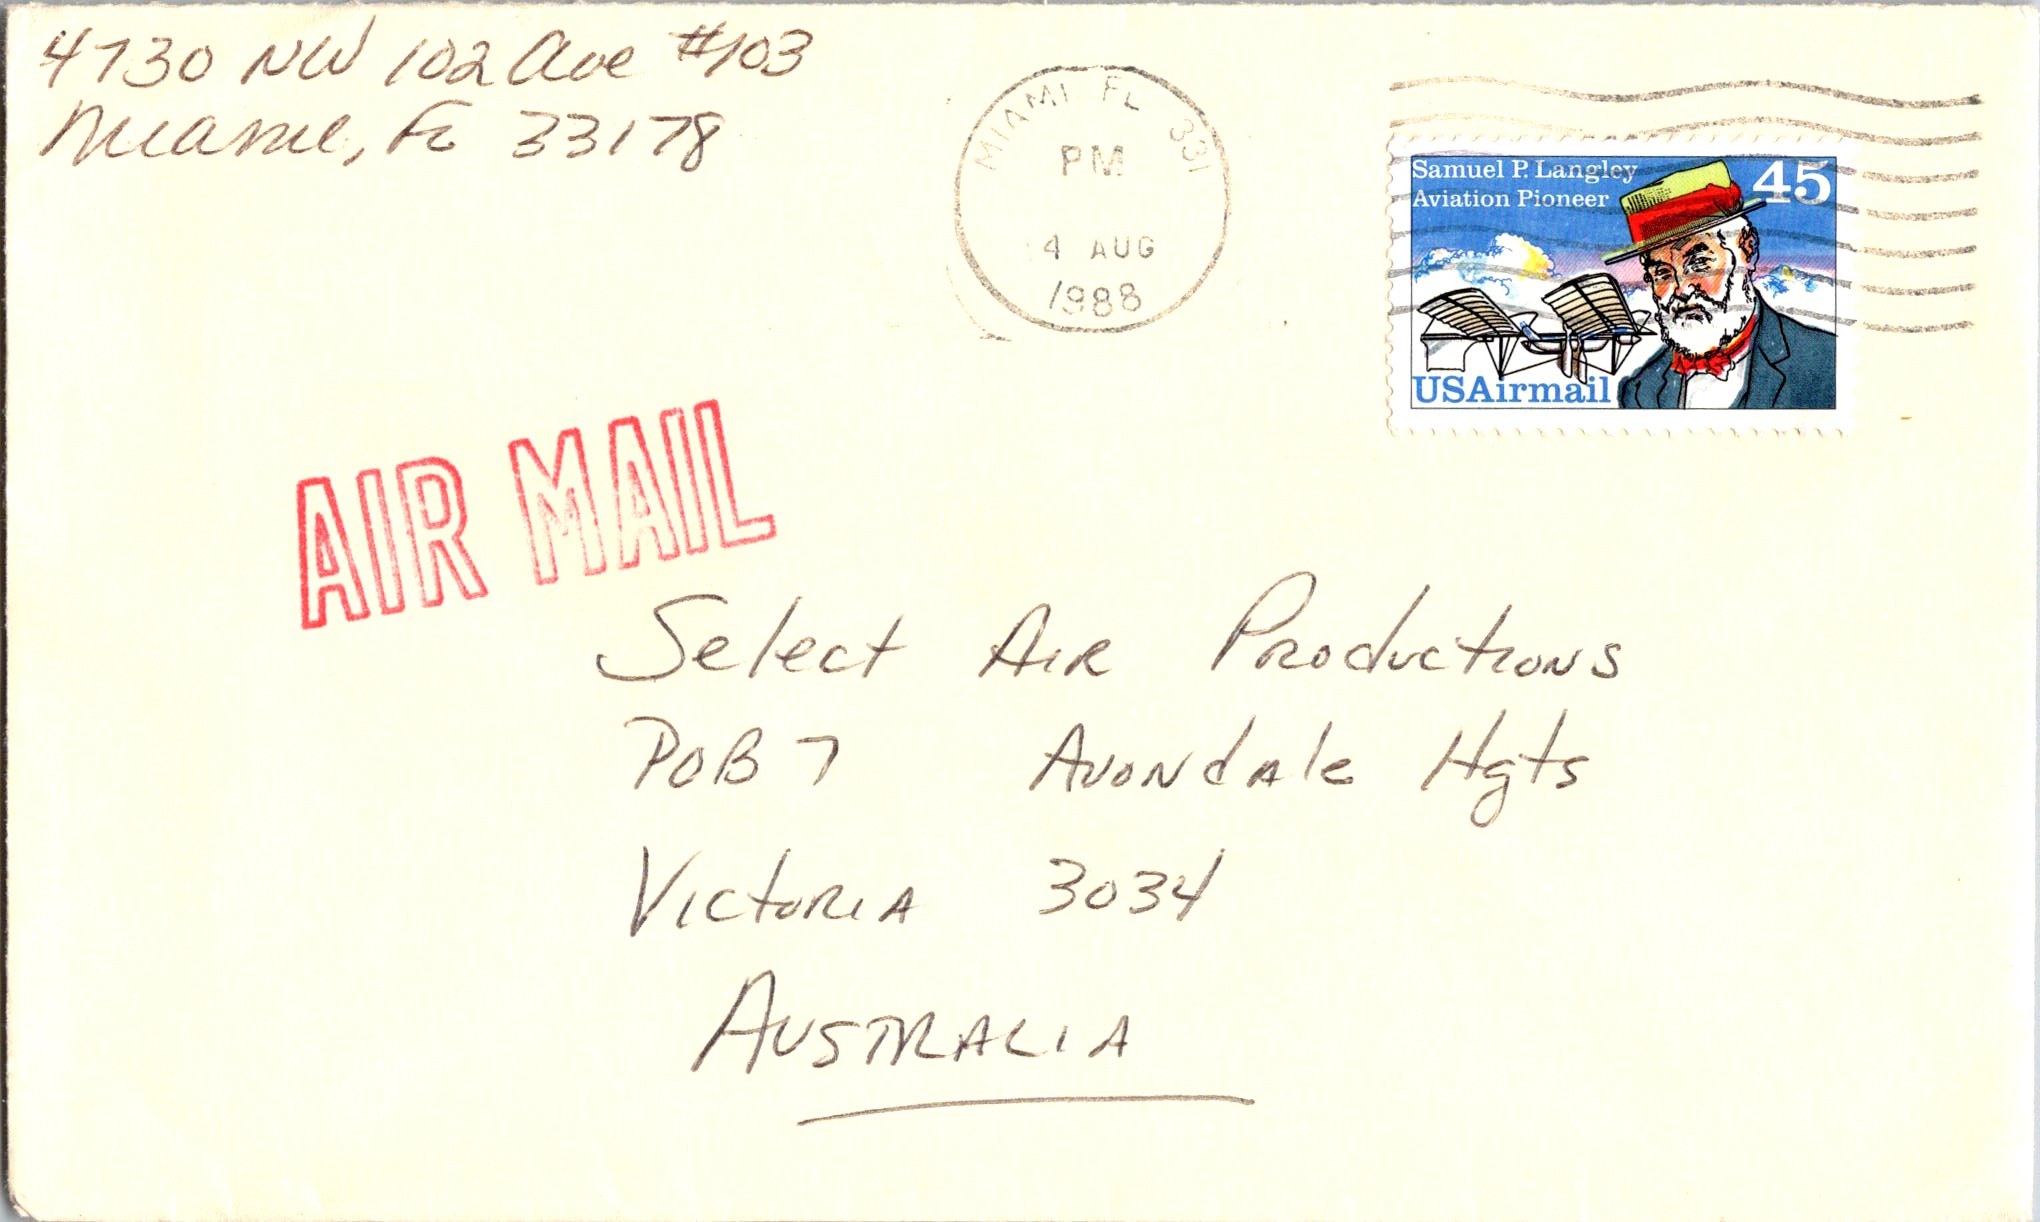 4730 NW 102 Ave #103
Miami, FL 33178
MIAMI FL 331
PM
4 AUG
1988
Samuel P. Langley
Aviation Pioneer
45
USAirmail
AIR MAIL
Select Air Productions
POB 7 Avondale Hgts
Victoria 3034
AUSTRALIA